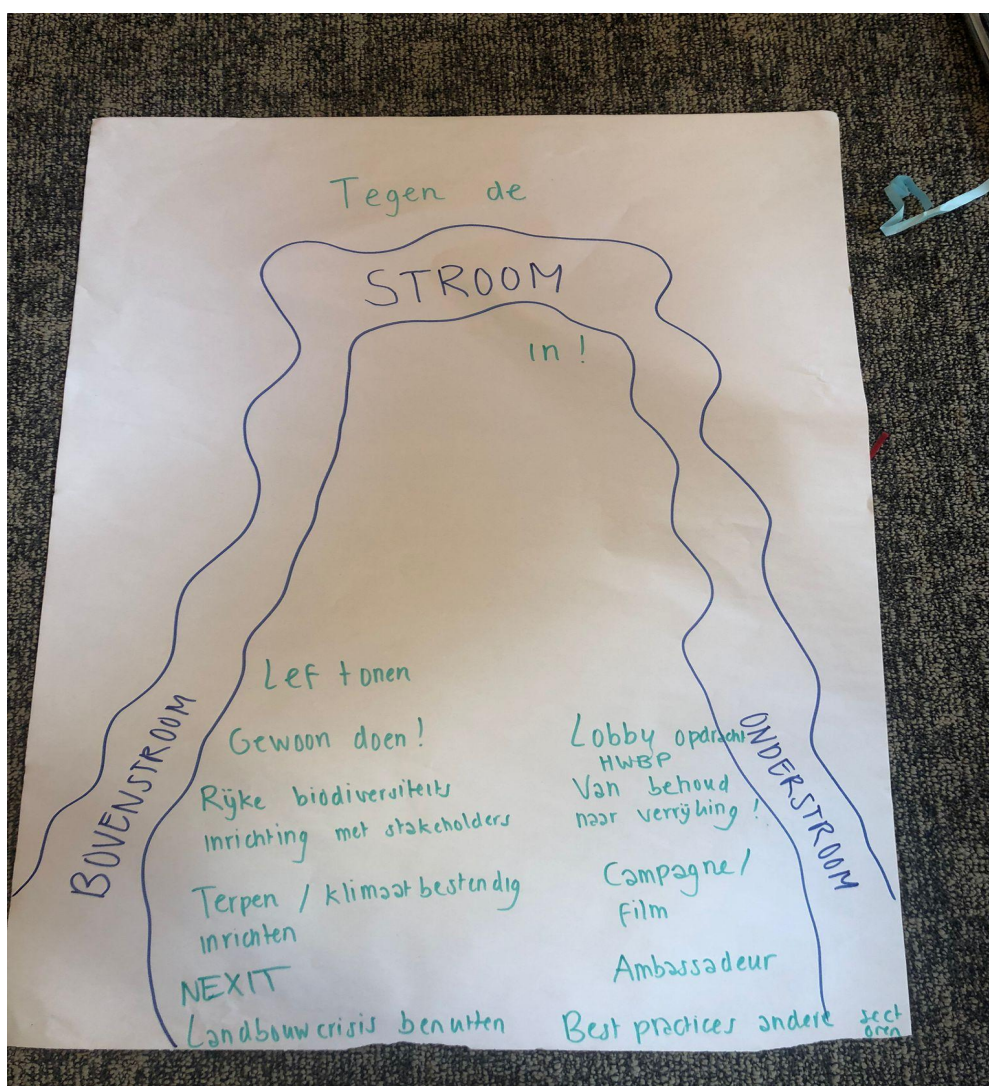 Tegen de
STROOM
in !
Lef tonen
Gewoon doen !
Rijke biodiversiteits
inrichting met stakeholders
Terpen / klimaatbestendig
inrichten
NEXIT
Landbouwcrisis benutten
BOVENSTROOM
Lobby opdracht
HWBP
Van behoud
naar verrijking !
Campagne /
film
Ambassadeur
Best practices andere sect
oren
ONDERSTROOM